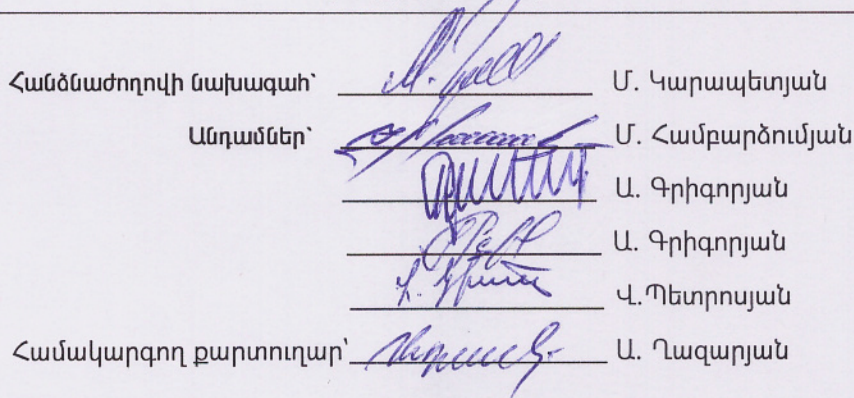 Հանձնաժողովի նախագահ՝ Մ. Կարապետյան
Անդամներ՝ Մ. Համբարձումյան
Ա. Գրիգորյան
Ա. Գրիգորյան
Վ.Պետրոսյան
Համակարգող քարտուղար՝ Ա. Ղազարյան